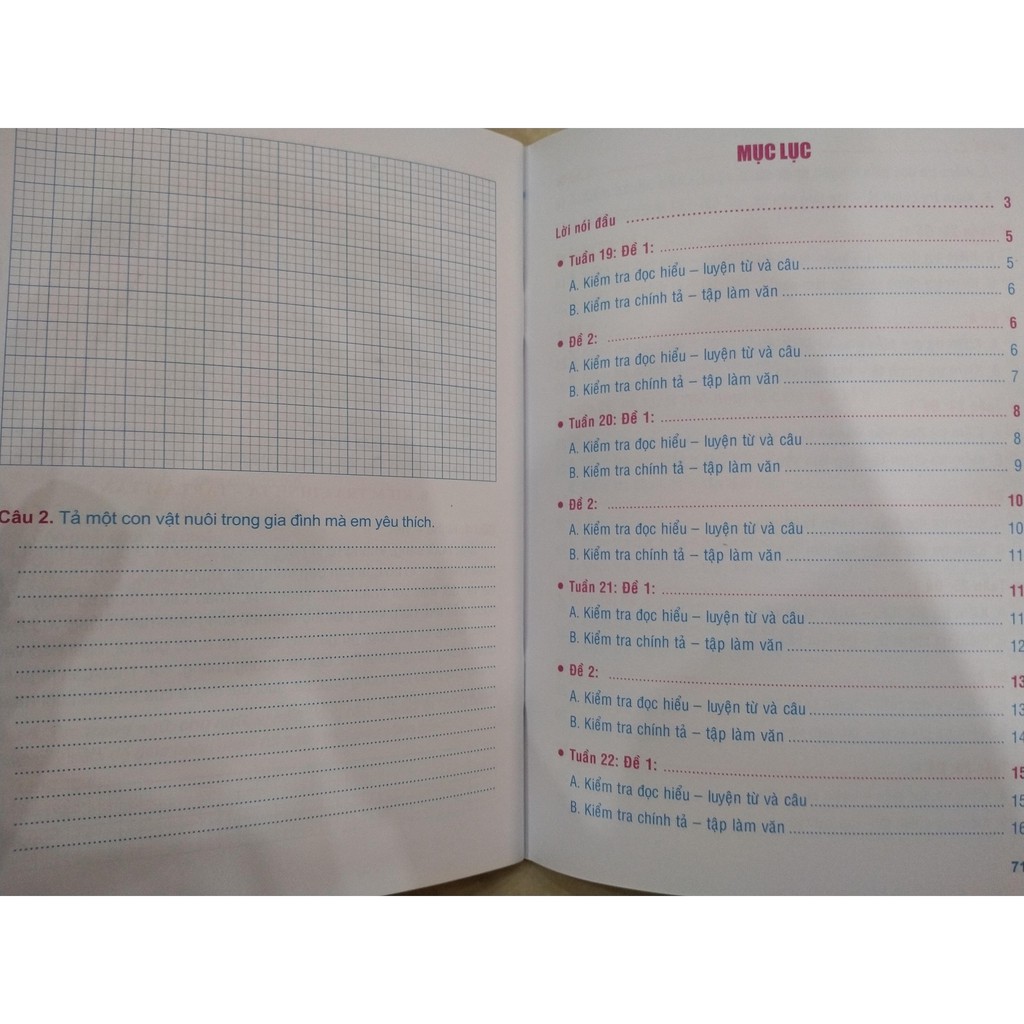 Câu 2. Tả một con vật nuôi trong gia đình mà em yêu thích.
MỤC LỤC
Lời nói đầu ........ 3
• Tuần 19: Đề 1: ........ 5
A. Kiểm tra đọc hiểu – luyện từ và câu ........ 5
B. Kiểm tra chính tả – tập làm văn ........ 6
• Đề 2: ........ 6
A. Kiểm tra đọc hiểu – luyện từ và câu ........ 6
B. Kiểm tra chính tả – tập làm văn ........ 7
• Tuần 20: Đề 1: ........ 8
A. Kiểm tra đọc hiểu – luyện từ và câu ........ 8
B. Kiểm tra chính tả – tập làm văn ........ 9
• Đề 2: ........ 10
A. Kiểm tra đọc hiểu – luyện từ và câu ........ 10
B. Kiểm tra chính tả – tập làm văn ........ 11
• Tuần 21: Đề 1: ........ 11
A. Kiểm tra đọc hiểu – luyện từ và câu ........ 11
B. Kiểm tra chính tả – tập làm văn ........ 12
• Đề 2: ........ 13
A. Kiểm tra đọc hiểu – luyện từ và câu ........ 13
B. Kiểm tra chính tả – tập làm văn ........ 14
• Tuần 22: Đề 1: ........ 15
A. Kiểm tra đọc hiểu – luyện từ và câu ........ 15
B. Kiểm tra chính tả – tập làm văn ........ 16
71